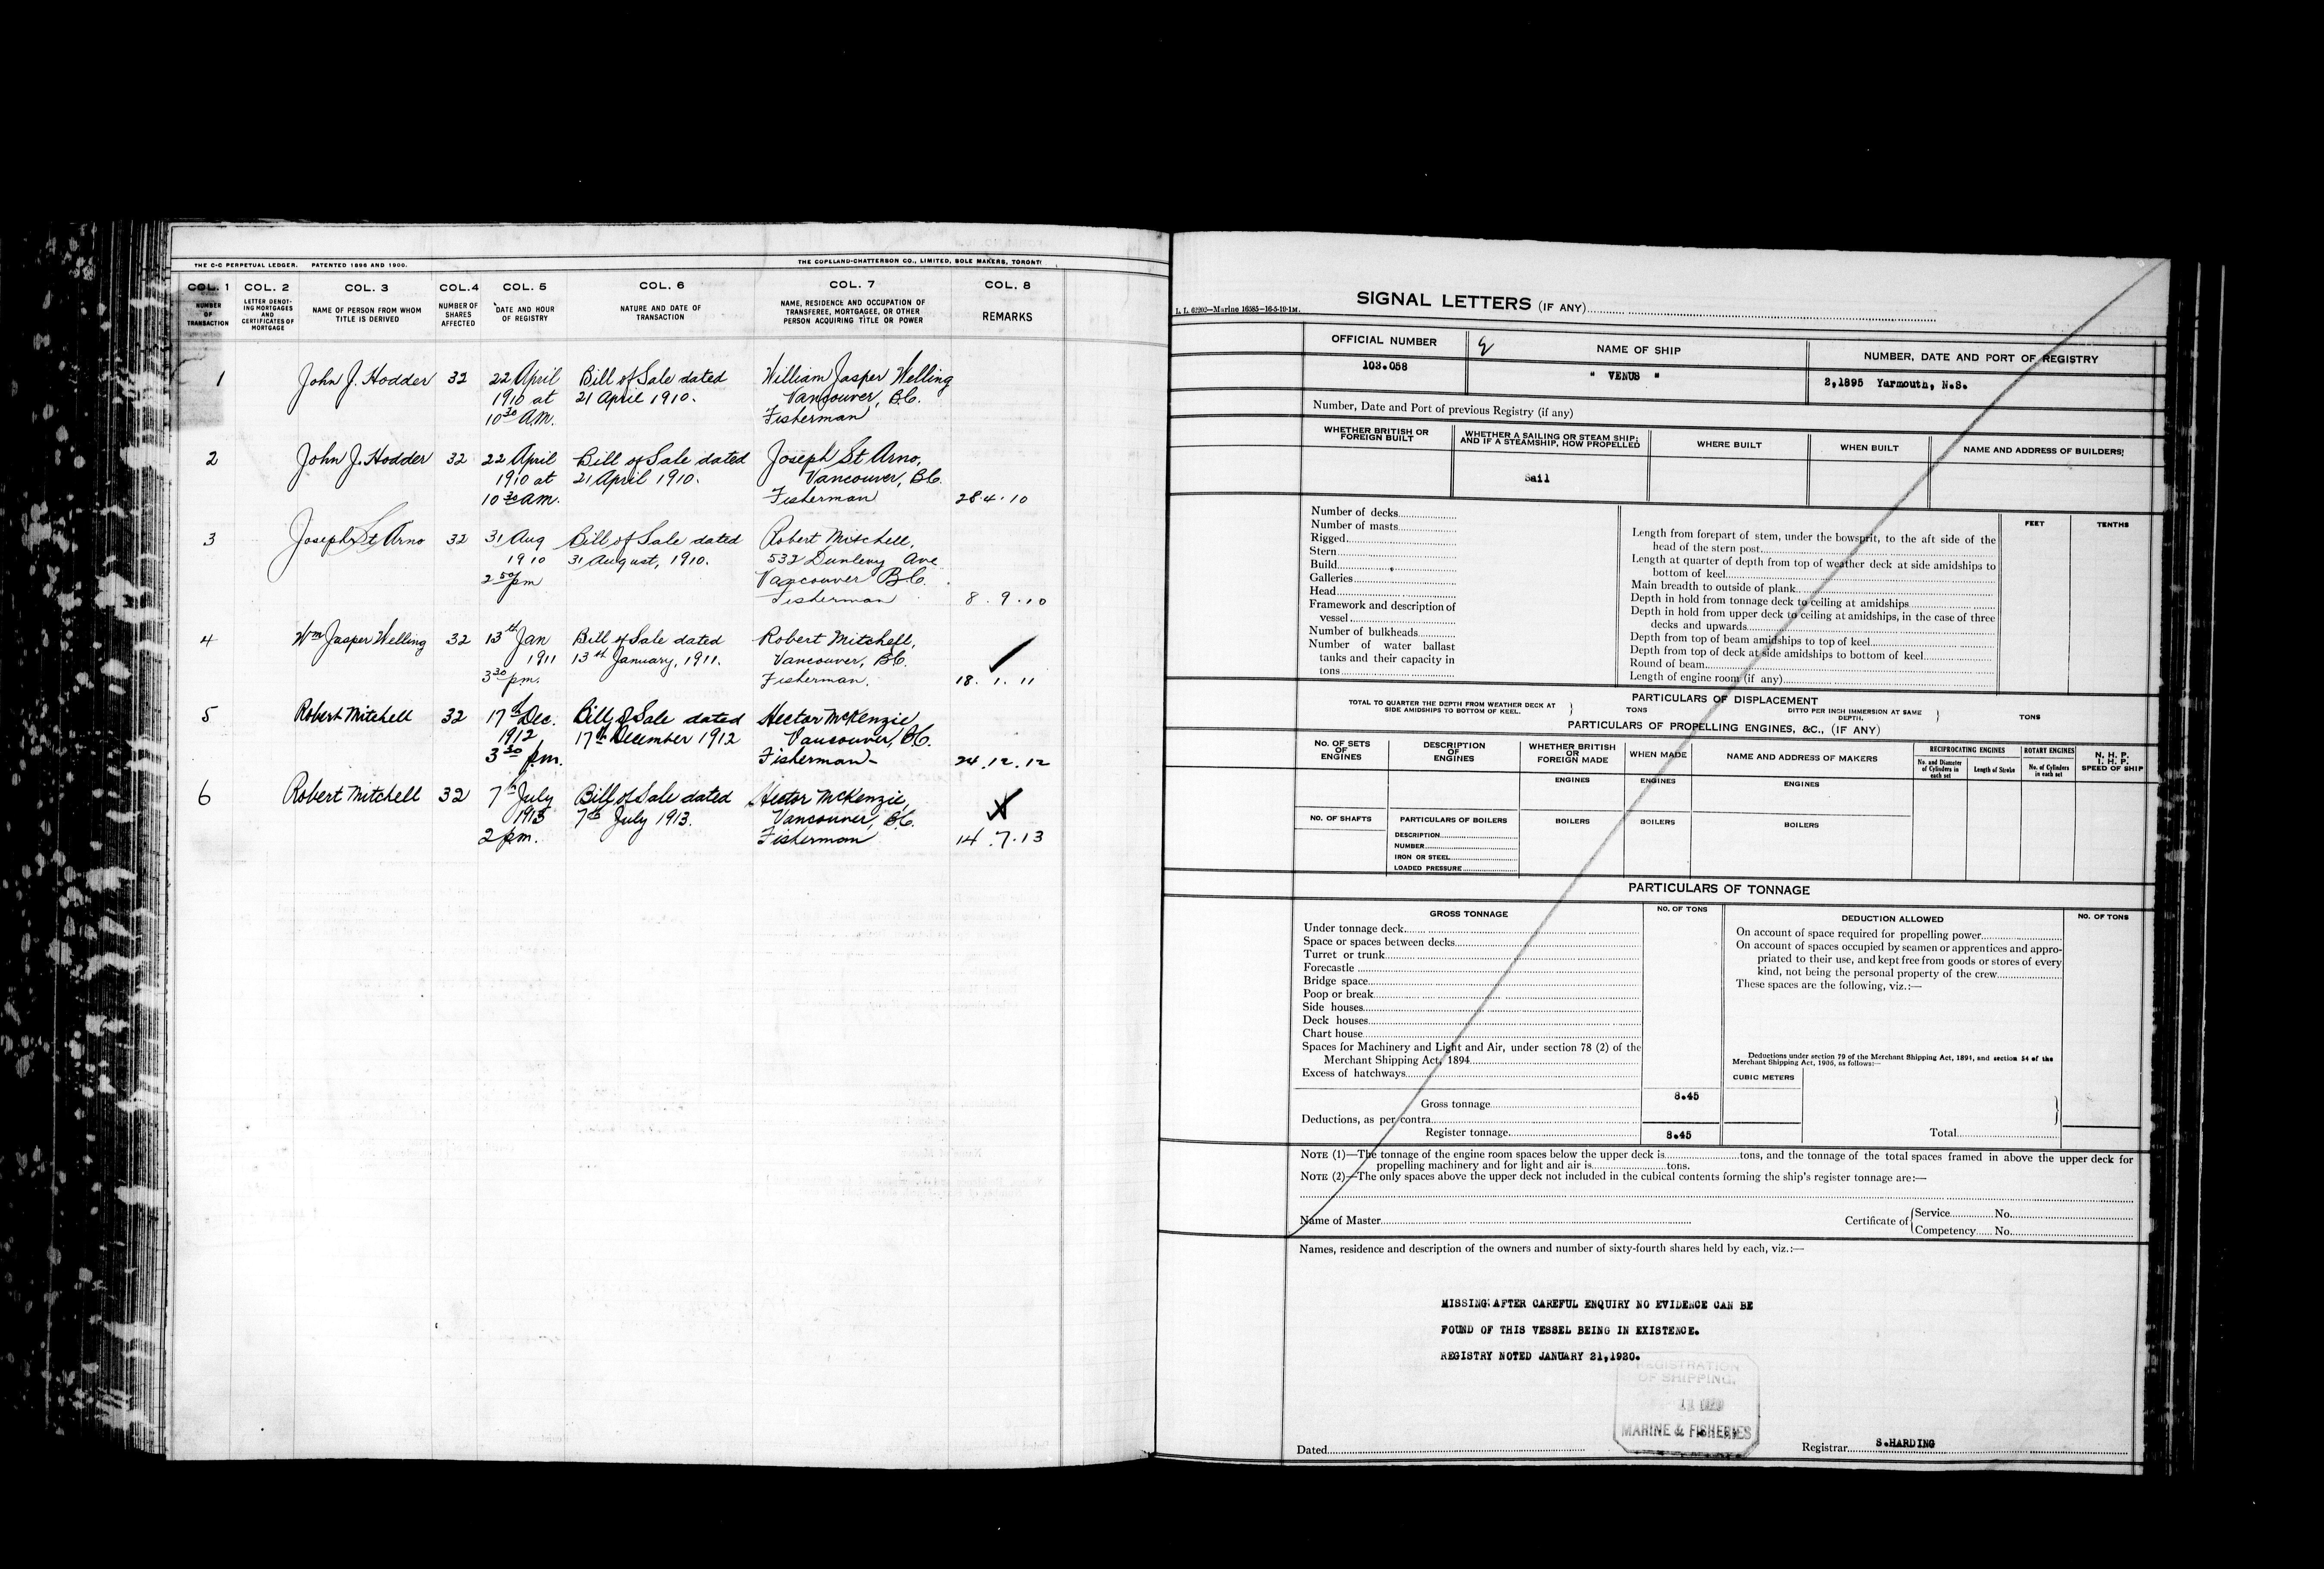 THE C-C PERPETUAL LEDGER. PATENTED 1896 AND 1900. THE COPELAND-CHATTERSON CO., LIMITED, SOLE MAKERS, TORONTO
COL. 1 COL. 2 COL. 3 COL. 4 COL. 5 COL. 6 COL. 7 COL. 8
NUMBER OF TRANSACTION
LETTER DENOTING MORTGAGES AND CERTIFICATES OF MORTGAGE
NAME OF PERSON FROM WHOM TITLE IS DERIVED
NUMBER OF SHARES AFFECTED
DATE AND HOUR OF REGISTRY
NATURE AND DATE OF TRANSACTION
NAME, RESIDENCE AND OCCUPATION OF TRANSFEREE, MORTGAGEE, OR OTHER PERSON ACQUIRING TITLE OR POWER
REMARKS
1 John J. Hodder 32 22 April Bill of Sale dated William Jasper Welling
1910 at 21 April 1910. Vancouver, B.C.
10 30 A.M. Fisherman
2 John J. Hodder 32 22 April Bill of Sale dated Joseph St Arno,
1910 at 21 April 1910. Vancouver, B.C.
10 30 am. Fisherman 28.4.10
3 Joseph St Arno 32 31 Aug Bill of Sale dated Robert Mitchell,
1910 31 August, 1910. 532 Dunlevy Ave
2 50 pm Vancouver B.C.
Fisherman 8.9.10
4 Wm Jasper Welling 32 13th Jan Bill of Sale dated Robert Mitchell,
1911 13th January, 1911. Vancouver, B.C.
3 30 pm. Fisherman. 18.1.11
5 Robert Mitchell 32 17th Dec. Bill of Sale dated Hector McKenzie,
1912 17th December 1912 Vancouver, B.C.
3 30 p.m. Fisherman- 24.12.12
6 Robert Mitchell 32 7th July Bill of Sale dated Hector McKenzie,
1913 7th July 1913. Vancouver, B.C.
2 pm. Fisherman 14.7.13
L. L. 62202—Marine 16585—16-5-19-1M.
SIGNAL LETTERS (IF ANY)
OFFICIAL NUMBER NAME OF SHIP NUMBER, DATE AND PORT OF REGISTRY
103.058 " VENUS " 2,1895 Yarmouth, N.S.
Number, Date and Port of previous Registry (if any)
WHETHER BRITISH OR FOREIGN BUILT
WHETHER A SAILING OR STEAM SHIP; AND IF A STEAMSHIP, HOW PROPELLED
WHERE BUILT
WHEN BUILT
NAME AND ADDRESS OF BUILDERS
Sail
Number of decks
Number of masts
Rigged
Stern
Build
Galleries
Head
Framework and description of
vessel
Number of bulkheads
Number of water ballast
tanks and their capacity in
tons
FEET TENTHS
Length from forepart of stem, under the bowsprit, to the aft side of the
head of the stern post
Length at quarter of depth from top of weather deck at side amidships to
bottom of keel
Main breadth to outside of plank
Depth in hold from tonnage deck to ceiling at amidships
Depth in hold from upper deck to ceiling at amidships, in the case of three
decks and upwards
Depth from top of beam amidships to top of keel
Depth from top of deck at side amidships to bottom of keel
Round of beam
Length of engine room (if any)
PARTICULARS OF DISPLACEMENT
TOTAL TO QUARTER THE DEPTH FROM WEATHER DECK AT SIDE AMIDSHIPS TO BOTTOM OF KEEL. TONS DITTO PER INCH IMMERSION AT SAME DEPTH. TONS
PARTICULARS OF PROPELLING ENGINES, &C., (IF ANY)
NO. OF SETS OF ENGINES
DESCRIPTION OF ENGINES
WHETHER BRITISH OR FOREIGN MADE
WHEN MADE
NAME AND ADDRESS OF MAKERS
RECIPROCATING ENGINES
No. and Diameter of Cylinders in each set
Length of Stroke
ROTARY ENGINES
No. of Cylinders in each set
N. H. P.
I. H. P.
SPEED OF SHIP
ENGINES ENGINES ENGINES
NO. OF SHAFTS PARTICULARS OF BOILERS BOILERS BOILERS BOILERS
DESCRIPTION
NUMBER
IRON OR STEEL
LOADED PRESSURE
PARTICULARS OF TONNAGE
GROSS TONNAGE NO. OF TONS DEDUCTION ALLOWED NO. OF TONS
Under tonnage deck
Space or spaces between decks
Turret or trunk
Forecastle
Bridge space
Poop or break
Side houses
Deck houses
Chart house
Spaces for Machinery and Light and Air, under section 78 (2) of the
Merchant Shipping Act, 1894
Excess of hatchways
Gross tonnage 8.45
Deductions, as per contra
Register tonnage 8.45
On account of space required for propelling power
On account of spaces occupied by seamen or apprentices and appro-
priated to their use, and kept free from goods or stores of every
kind, not being the personal property of the crew
These spaces are the following, viz.:—
Deductions under section 79 of the Merchant Shipping Act, 1894, and section 54 of the
Merchant Shipping Act, 1906, as follows:—
CUBIC METERS
Total
NOTE (1)—The tonnage of the engine room spaces below the upper deck is tons, and the tonnage of the total spaces framed in above the upper deck for
propelling machinery and for light and air is tons.
NOTE (2)—The only spaces above the upper deck not included in the cubical contents forming the ship's register tonnage are:—
Name of Master Certificate of Service No.
Competency No.
Names, residence and description of the owners and number of sixty-fourth shares held by each, viz.:—
MISSING: AFTER CAREFUL ENQUIRY NO EVIDENCE CAN BE
FOUND OF THIS VESSEL BEING IN EXISTENCE.
REGISTRY NOTED JANUARY 21,1920.
REGISTRATION
OF SHIPPING.
MARINE & FISHERIES
Dated Registrar S.HARDING